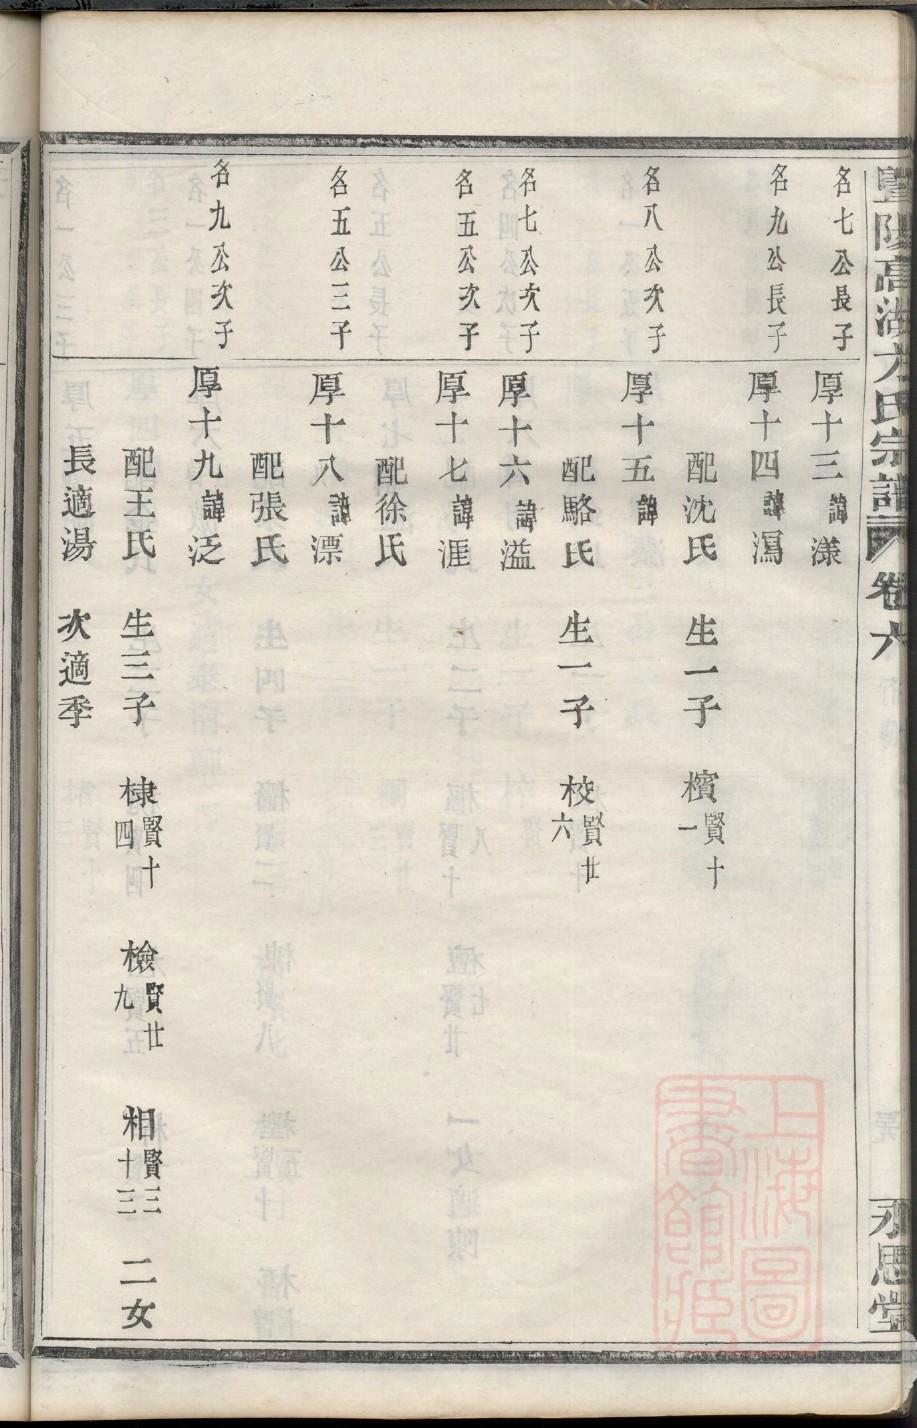 暨陽高湖方氏宗譜 卷六 永思堂
名七公長子
厚十三諱漾
名九公長子
厚十四諱瀉
配沈氏 生一子 檳賢十一
名八公次子
厚十五諱
配駱氏 生一子 校賢廿六
名七公次子
厚十六諱溢
名五公次子
厚十七諱涯
配徐氏
名五公三子
厚十八諱漂
配張氏
名九公次子
厚十九諱泛
配王氏 生三子 棣賢十四 檢賢廿九 相賢三十三 二女
長適湯 次適季
上海圖書館藏